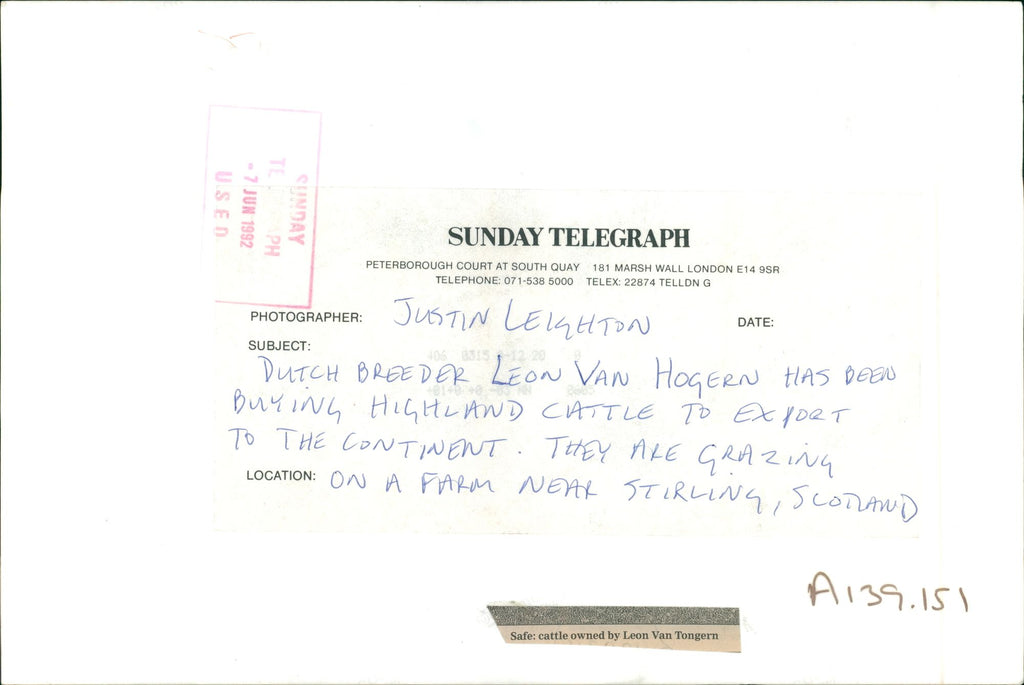 SUNDAY
TE PH
- 7 JUN 1992
USED
SUNDAY TELEGRAPH
PETERBOROUGH COURT AT SOUTH QUAY 181 MARSH WALL LONDON E14 9SR
TELEPHONE: 071-538 5000 TELEX: 22874 TELLDN G
PHOTOGRAPHER: JUSTIN LEIGHTON DATE:
SUBJECT:
DUTCH BREEDER LEON VAN HOGERN HAS BEEN
BUYING HIGHLAND CATTLE TO EXPORT
TO THE CONTINENT. THEY ARE GRAZING
LOCATION: ON A FARM NEAR STIRLING, SCOTLAND
A139.151
Safe: cattle owned by Leon Van Tongern